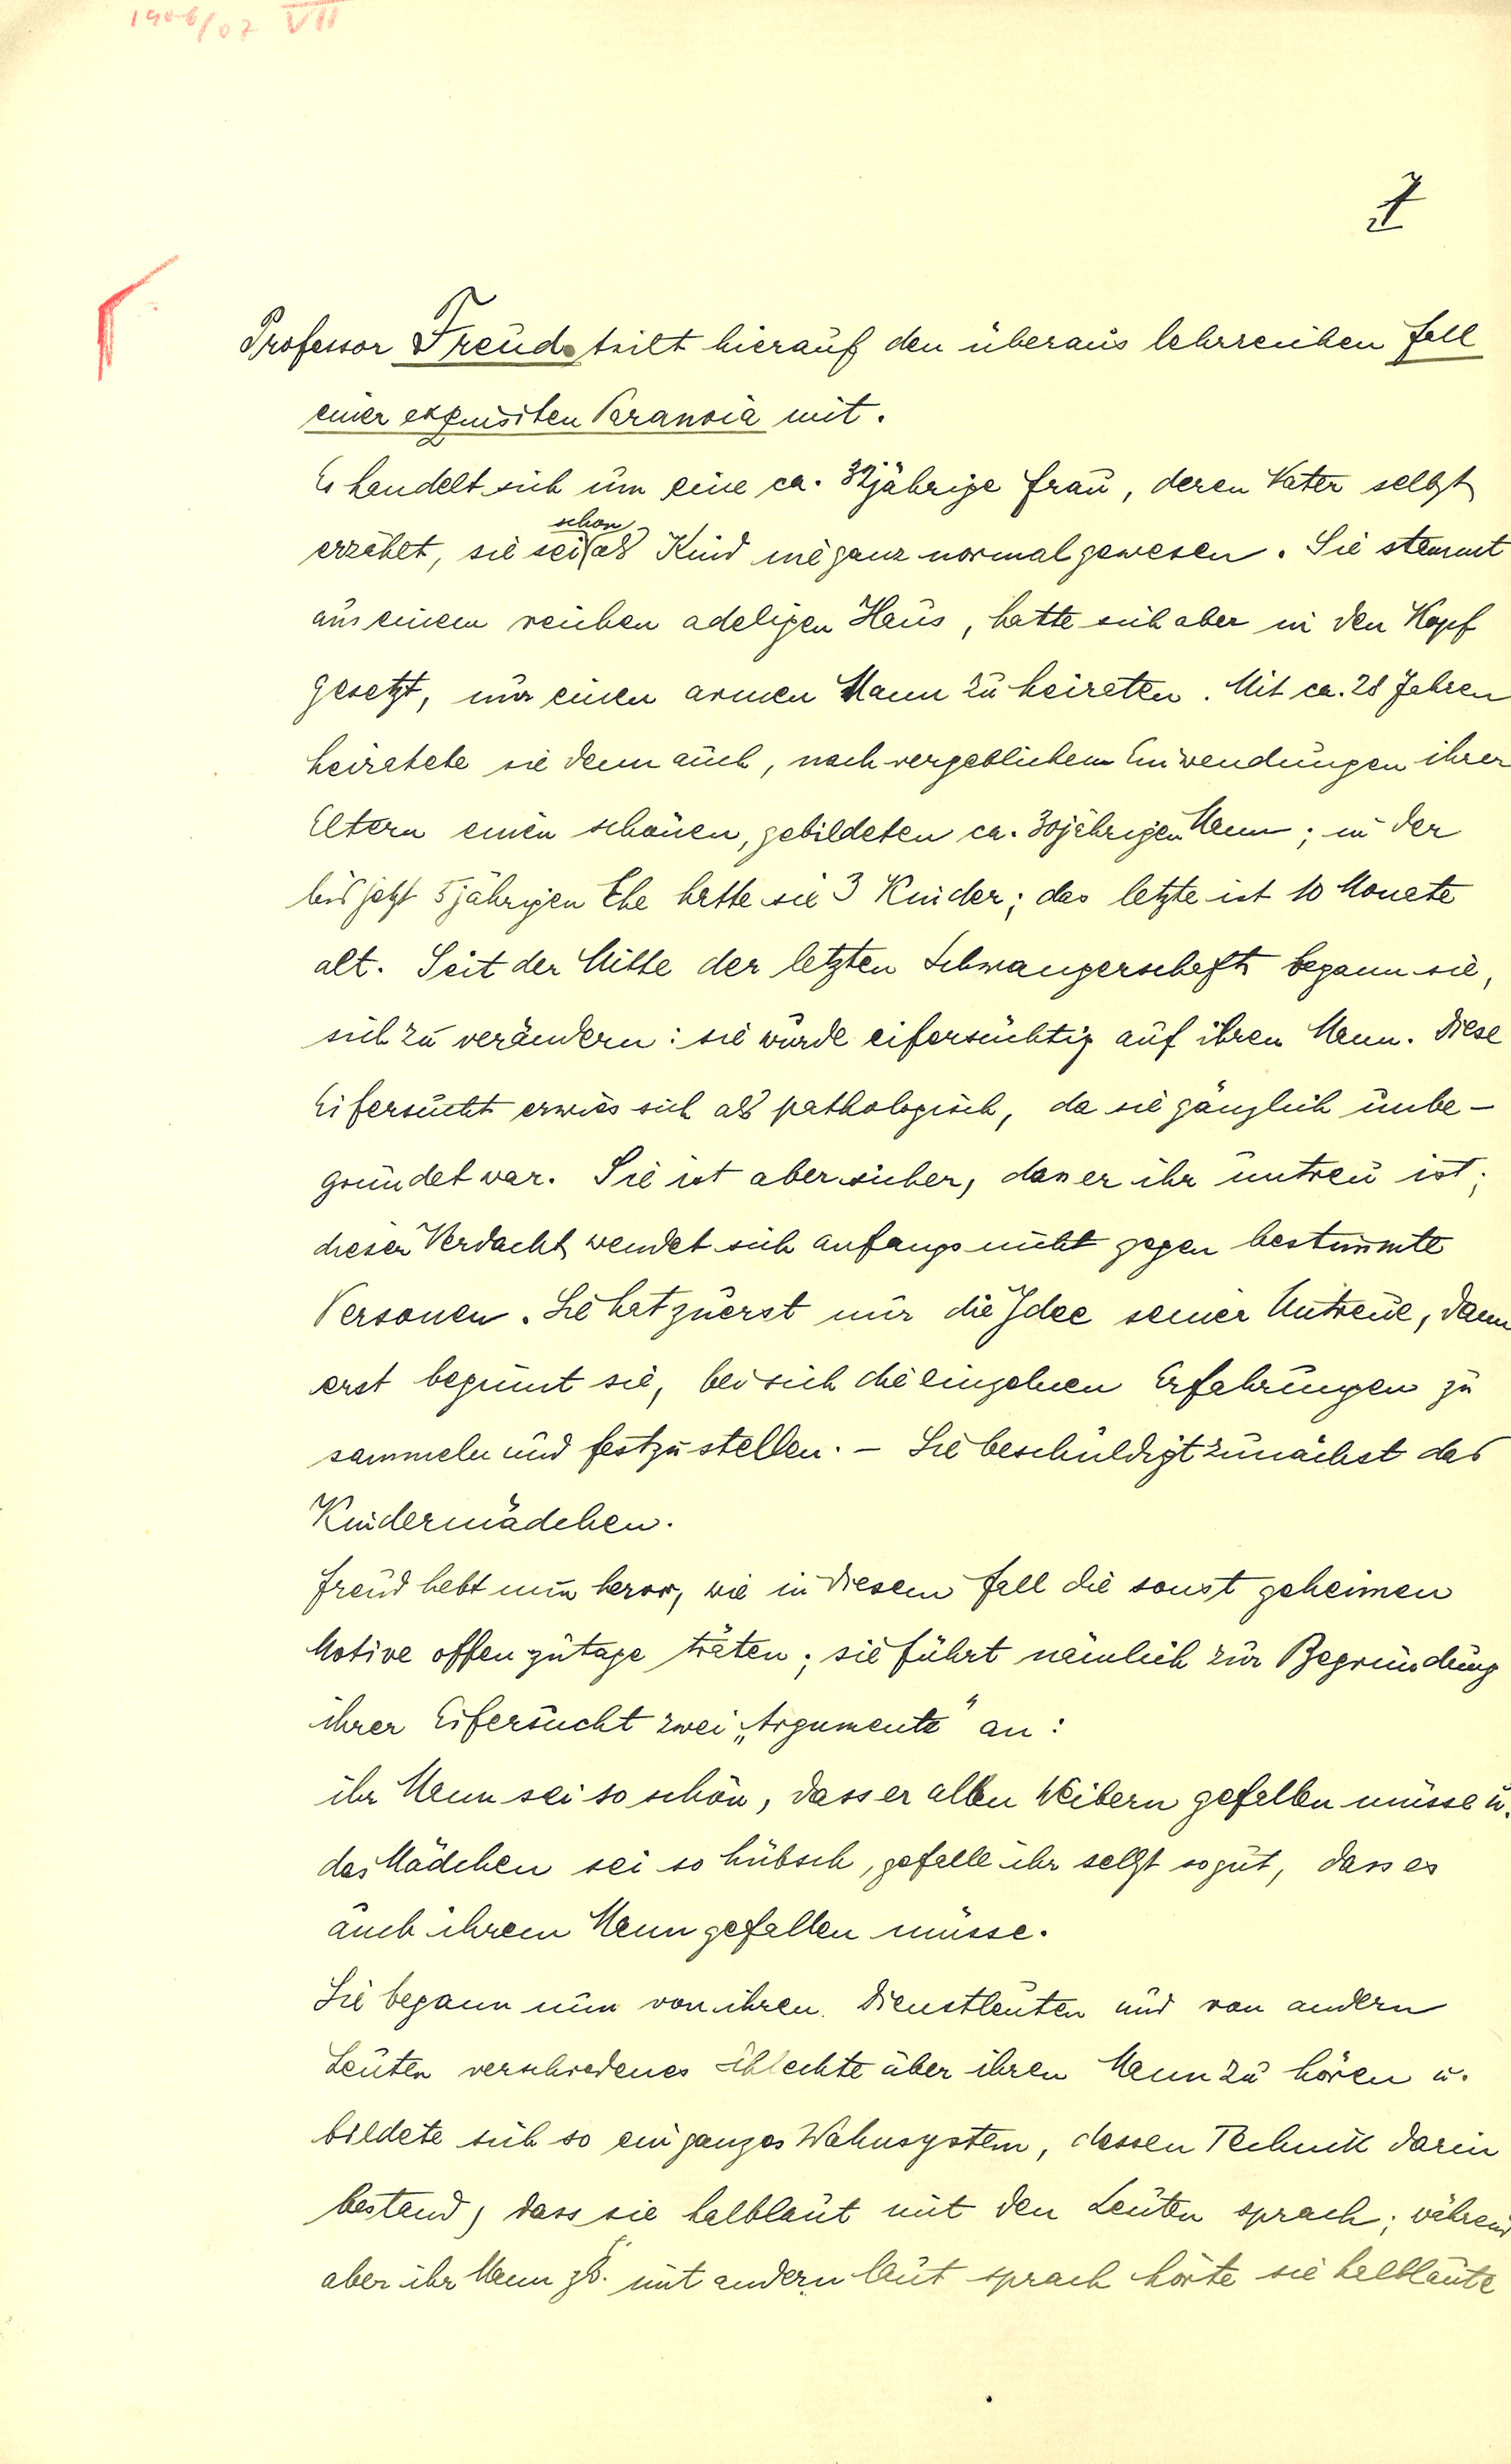 1906/07 VII
7
Professor Freud teilt hierauf den überaus lehrreichen Fall
einer exquisiten Paranoia mit.
Es handelt sich um eine ca. 32jährige Frau, deren Vater selbst
schon
erzählt, sie sei als Kind nie ganz normal gewesen. Sie stammt
aus einem reichen adeligen Haus, hatte sich aber in den Kopf
gesetzt, nur einen armen Mann zu heiraten. Mit ca. 28 Jahren
heiratete sie denn auch, nach vergeblichem Einwendungen ihrer
Eltern einen schönen, gebildeten ca. 30jährigen Mann; in der
bis jetzt 5jährigen Ehe hatte sie 3 Kinder; das letzte ist 10 Monate
alt. Seit der Mitte der letzten Schwangerschaft begann sie,
sich zu verändern: sie wurde eifersüchtig auf ihren Mann. Diese
Eifersucht erwies sich als pathologisch, da sie gänzlich unbe-
gründet war. Sie ist aber sicher, dass er ihr untreu ist;
dieser Verdacht wendet sich anfangs nicht gegen bestimmte
Personen. Sie hat zuerst nur die Idee seiner Untreue, dann
erst beginnt sie, bei sich die einzelnen Erfahrungen zu
sammeln und festzustellen. – Sie beschuldigt zunächst das
Kindermädchen.
Freud hebt nun hervor, wie in diesem Fall die sonst geheimen
Motive offen zutage träten; sie führt nämlich zur Begründung
ihrer Eifersucht zwei „Argumente" an:
ihr Mann sei so schön, dass er allen Weibern gefallen müsse u.
das Mädchen sei so hübsch, gefalle ihr selbst so gut, dass es
auch ihrem Mann gefallen müsse.
Sie begann nun von ihren Dienstleuten und von andern
Leuten verschiedenes Schlechte über ihren Mann zu hören u.
bildete sich so ein ganzes Wahnsystem, dessen Technik darin
bestand, dass sie halblaut mit den Leuten sprach; während
aber ihr Mann zB. mit andern laut sprach hörte sie halblaute